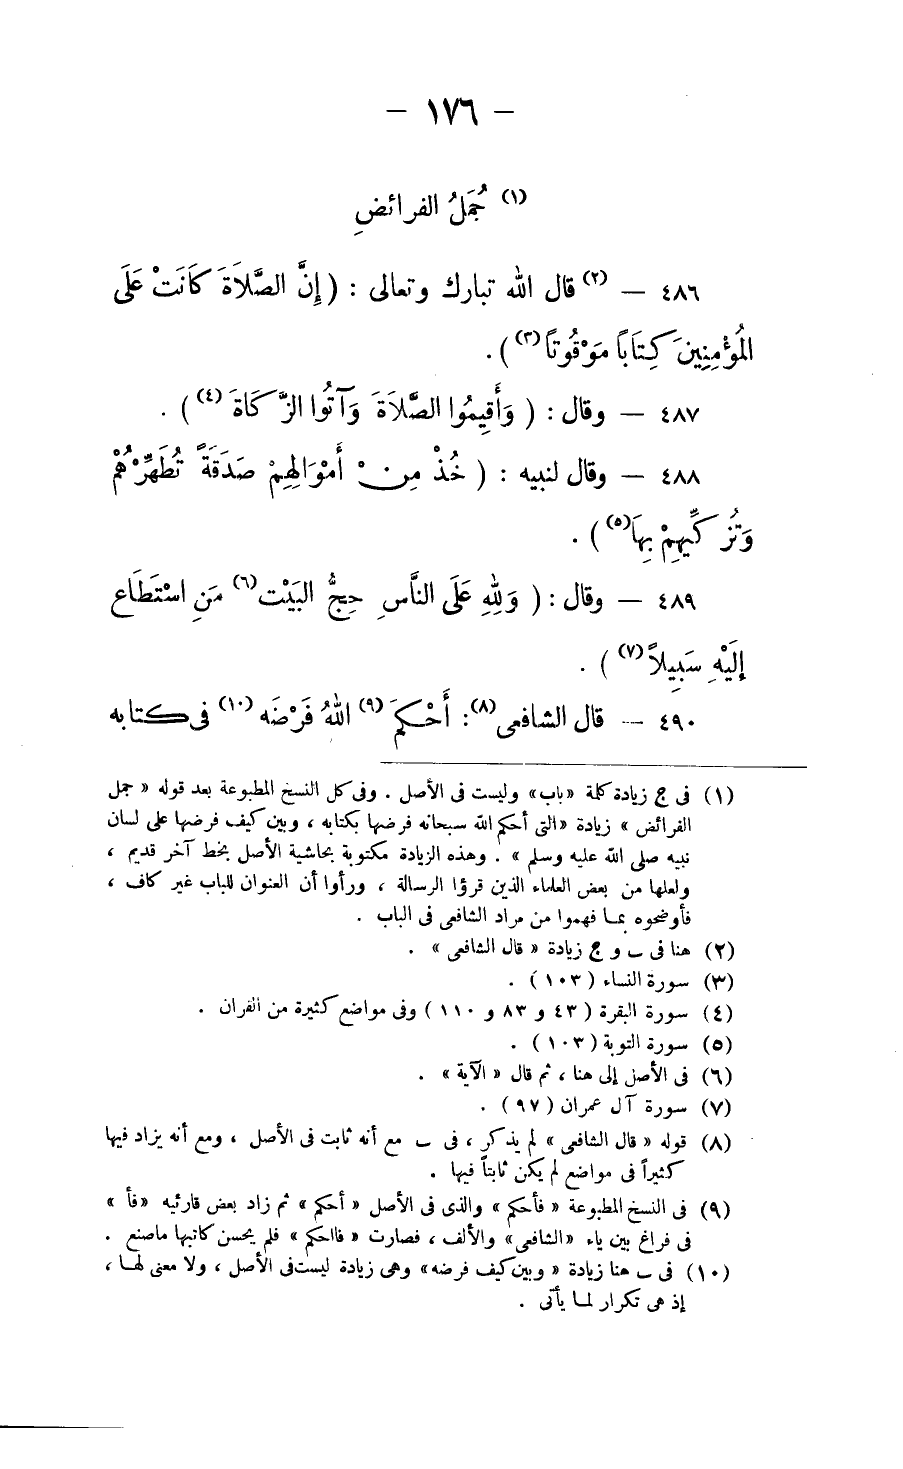 — ١٧٦ —
(١) جُمَلُ الفرائضِ
٤٨٦ — (٢) قال الله تبارك وتعالى : ( إِنَّ الصَّلاَةَ كَانَتْ عَلَى
المُؤْمِنِينَ كِتَاباً مَوْقُوتاً(٣) ) .
٤٨٧ — وقال : ( وَأَقِيمُوا الصَّلاَةَ وَآتُوا الزَّكَاةَ (٤) ) .
٤٨٨ — وقال لنبيه : ( خُذْ مِنْ أَمْوَالِهِمْ صَدَقَةً تُطَهِّرُهُمْ
وَتُزَكِّيهِمْ بِهَا(٥) ) .
٤٨٩ — وقال : ( وَلِلهِ عَلَى النَّاسِ حِجُّ البَيْت(٦) مَنِ اسْتَطَاع
إِلَيْهِ سَبِيلاً(٧) ) .
٤٩٠ — قال الشافعى(٨): أَحْكَمَ (٩) اللهُ فَرْضَه (١٠) فى كتابه
(١) فى ج زيادة كلمة «باب» وليست فى الأصل . وفى كل النسخ المطبوعة بعد قوله « جمل
الفرائض » زيادة «التى أحكم الله سبحانه فرضها بكتابه ، وبين كيف فرضها على لسان
نبيه صلى الله عليه وسلم » . وهذه الزيادة مكتوبة بحاشية الأصل بخط آخر قديم ،
ولعلها من بعض العلماء الذين قرؤا الرسالة ، ورأوا أن العنوان للباب غير كاف ،
فأوضحوه بما فهموا من مراد الشافعى فى الباب .
(٢) هنا فى ب و ج زيادة « قال الشافعى » .
(٣) سورة النساء ( ١٠٣ ) .
(٤) سورة البقرة ( ٤٣ و ٨٣ و ١١٠ ) وفى مواضع كثيرة من القرآن .
(٥) سورة التوبة ( ١٠٣ ) .
(٦) فى الأصل إلى هنا ، ثم قال « الآية » .
(٧) سورة آل عمران ( ٩٧ ) .
(٨) قوله « قال الشافعى » لم يذكر ، فى ب مع أنه ثابت فى الأصل ، ومع أنه يزاد فيها
كثيراً فى مواضع لم يكن ثابتاً فيها .
(٩) فى النسخ المطبوعة « فأحكم » والذى فى الأصل « أحكم » ثم زاد بعض قارئيه «فأ »
فى فراغ بين ياء «الشافعى» والألف ، فصارت « فااحكم » فلم يحسن كاتبها ماصنع .
(١٠) فى ب هنا زيادة « وبين كيف فرضه» وهى زيادة ليست فى الأصل ، ولا معنى لها ،
إذ هى تكرار لما يأتى .